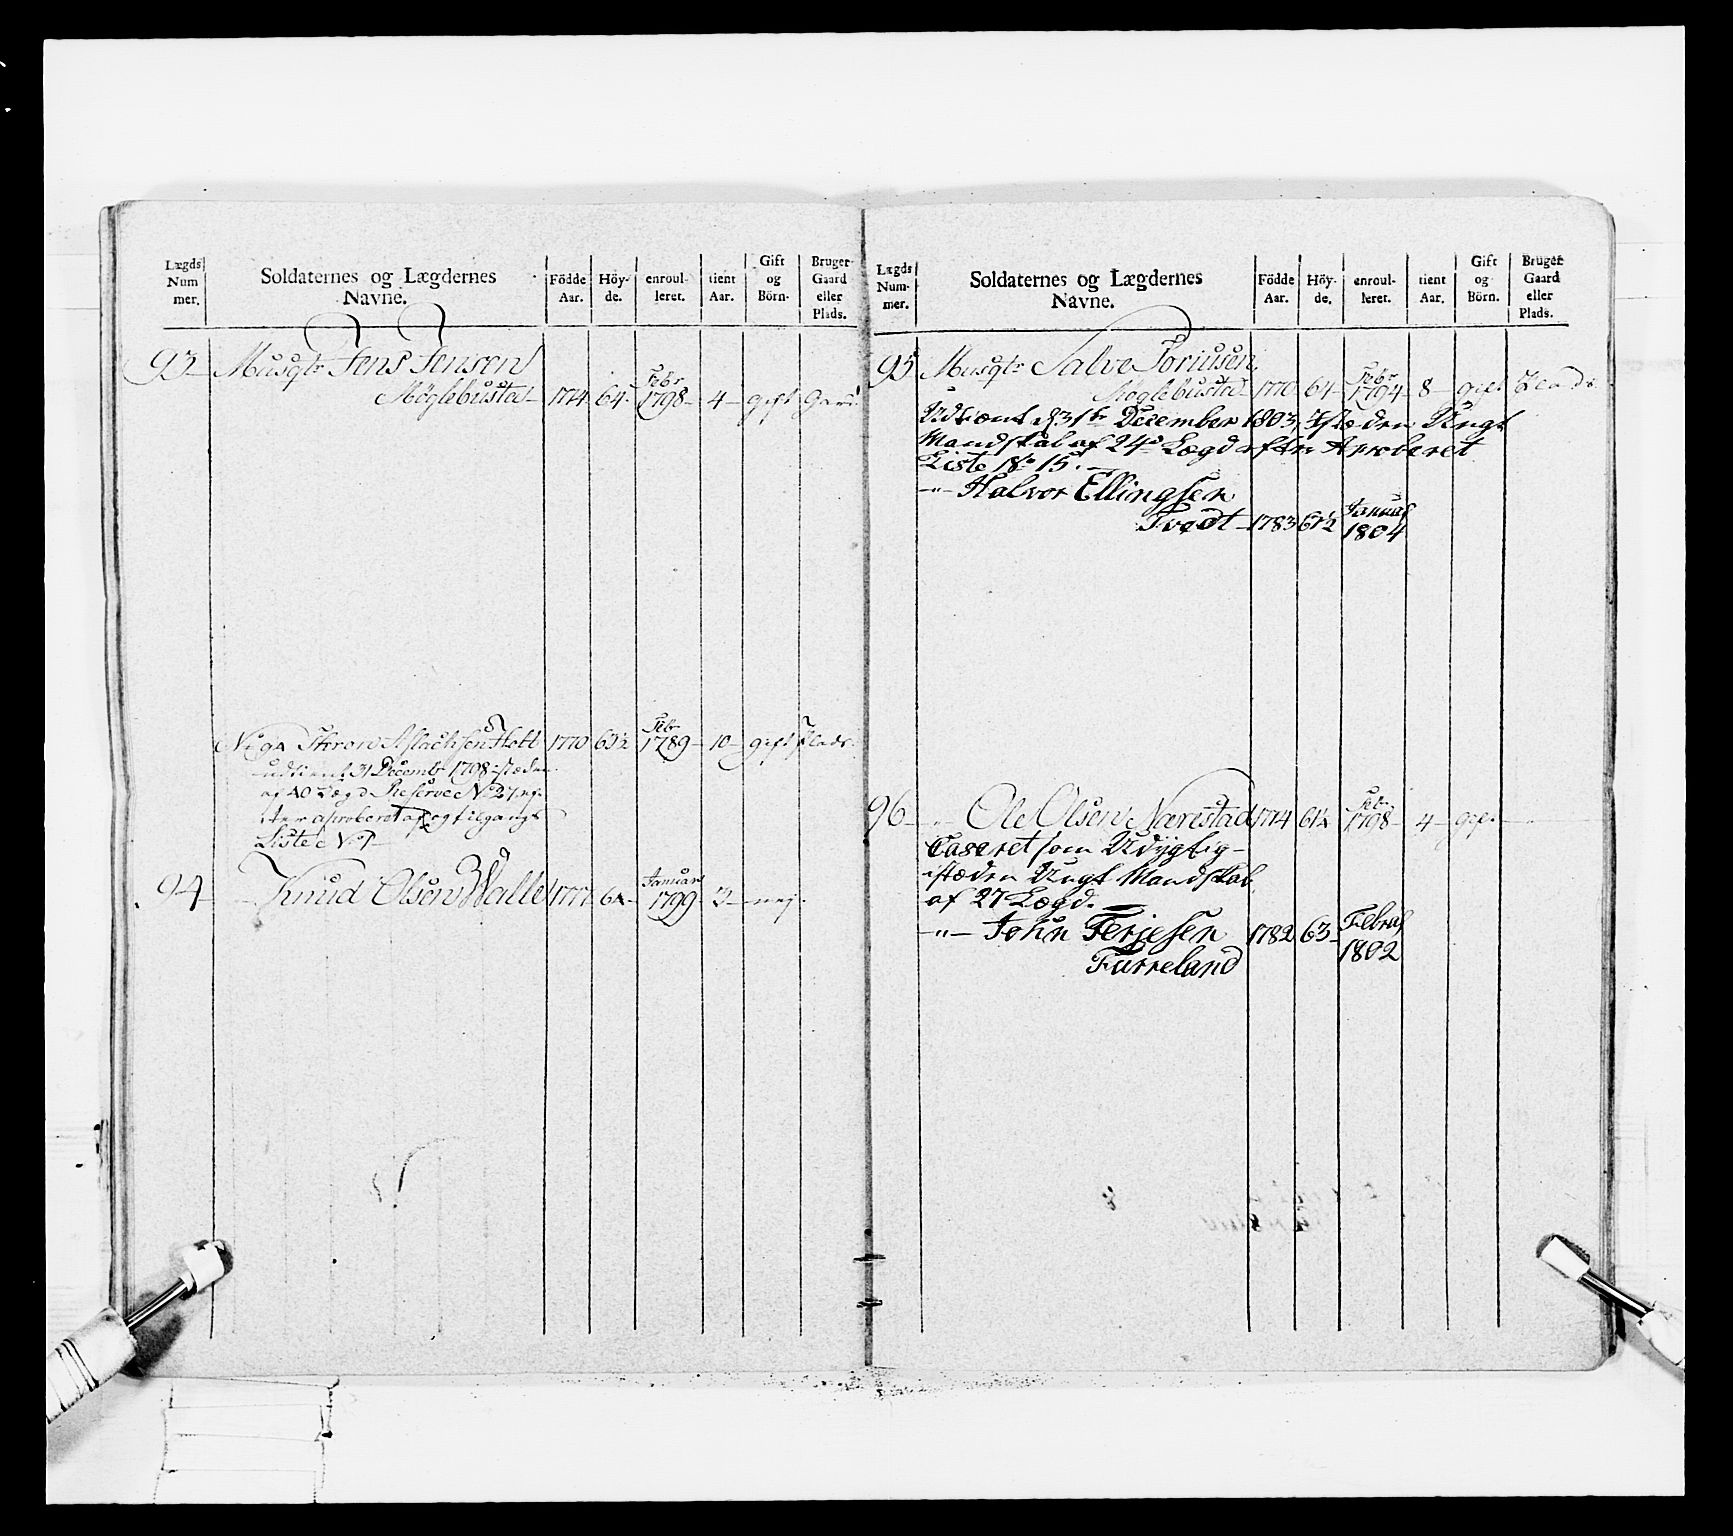 Lægds Num mer. Soldaternes og Lægdernes Navne. Födde Aar. Höy-de. enroul-leret. tient Aar. Gift og Börn. Bruger Gaard eller Plads.
93 Musqtr Jens Jensen
Möglebustad 1774 64 Febr 1798 4 gift Gaard
1770 63½ Febr 1789 10 gift Plads
udtient 31 Decembr 1798 istæden
af 40 Lægd Reserve No 27 ef-
ter aproberet af og tilgangs
Liste
94 Knud Olsen Walle 1777 64 Januar 1799 3 nej
Lægds Num-mer. Soldaternes og Lægdernes Navne. Födde Aar. Höy-de. enroul-leret. tient Aar. Gift og Börn. Bruger Gaard eller Plads.
95 Musqtr Salve Torjusen
Möglebustad 1770 64 Febr 1794 8 gift Plads
Udtient d 31te December 1803, istæden Ungt
Mandskab af 24de Lægd efter Aproberet
Liste No 15.
-"- Halvor Ellingsen
Tvedt 1783 67½ Januar 1804
96 " Ole Olsen Nærestad 1774 61½ Febr 1798 4 gift "
Caseret som Udygtig
istæden Ungt Mandskab
af 27 Lægd.
-"- John Terjesen 1782 63 Februar 1802
Furreland